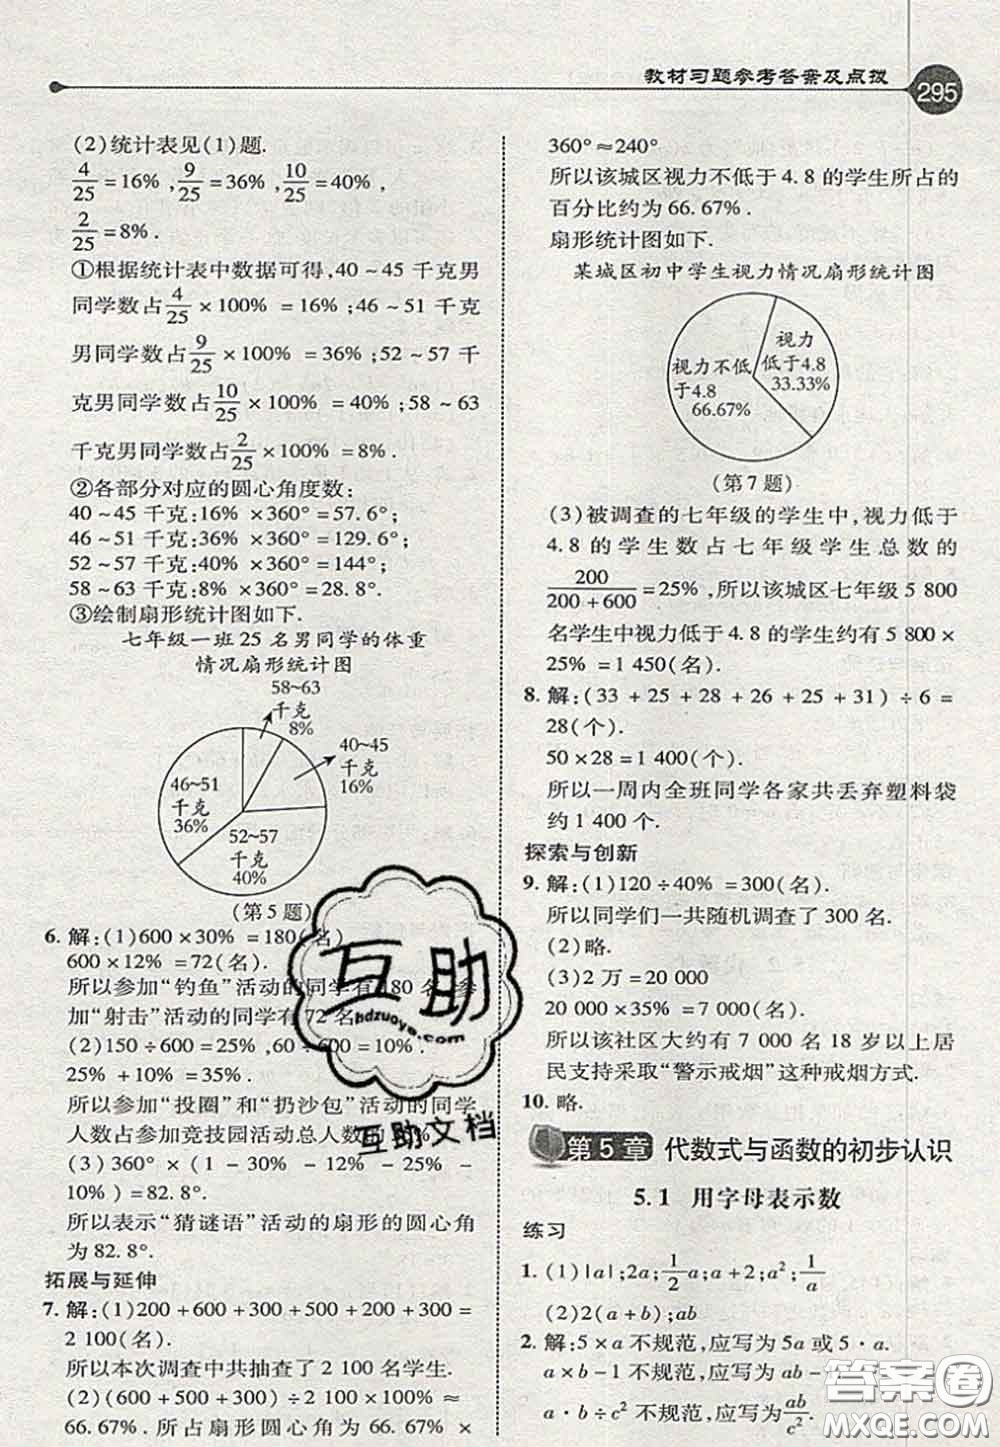 教材习题参考答案及点拨
295
(2)统计表见(1)题.
4/25=16%,9/25=36%,10/25=40%,
2/25=8%.
①根据统计表中数据可得,40~45 千克男
同学数占4/25×100%=16%;46~51 千克
男同学数占9/25×100%=36%;52~57 千
克男同学数占10/25×100%=40%;58~63
千克男同学数占2/25×100%=8%.
②各部分对应的圆心角度数:
40~45 千克:16%×360°=57.6°;
46~51 千克:36%×360°=129.6°;
52~57 千克:40%×360°=144°;
58~63 千克:8%×360°=28.8°.
③绘制扇形统计图如下.
七年级一班25 名男同学的体重
情况扇形统计图
58~63
千克
8%
40~45
千克
16%
46~51
千克
36%
52~57
千克
40%
(第5题)
6. 解:(1)600×30%=180(名)
600×12%=72(名).
所以参加“钓鱼”活动的同学有180 名,参
加“射击”活动的同学有72 名.
(2)150÷600=25%,60÷600=10%.
25%+10%=35%.
所以参加“投圈”和“扔沙包”活动的同学
人数占参加竞技园活动总人数的35%.
(3)360°×(1-30%-12%-25%-
10%)=82.8°.
所以表示“猜谜语”活动的扇形的圆心角
为82.8°.
拓展与延伸
7. 解:(1)200+600+300+500+200+300=
2 100(名).
所以本次调查中共抽查了2 100名学生.
(2)(600+500+300)÷2 100≈
66.67%.所占扇形圆心角为66.67%×
360°≈240°
所以该城区视力不低于4.8的学生所占的
百分比约为66.67%.
扇形统计图如下.
某城区初中学生视力情况扇形统计图
视力
低于4.8
33.33%
视力不低
于4.8
66.67%
(第7题)
(3)被调查的七年级的学生中,视力低于
4.8的学生数占七年级学生总数的
200/(200+600)=25%,所以该城区七年级5 800
名学生中视力低于4.8的学生约有5 800×
25%=1 450(名).
8. 解:(33+25+28+26+25+31)÷6=
28(个).
50×28=1 400(个).
所以一周内全班同学各家共丢弃塑料袋
约1 400个.
探索与创新
9. 解:(1)120÷40%=300(名).
所以同学们一共随机调查了300名.
(2)略.
(3)2万=20 000
20 000×35%=7 000(名).
所以该社区大约有7 000名18岁以上居
民支持采取“警示戒烟”这种戒烟方式.
10. 略.
第5章 代数式与函数的初步认识
5.1 用字母表示数
练习
1. (1)|a|;2a;1/2 a;a+2;a²;1/a
(2)2(a+b);ab
2. 解:5×a不规范,应写为5a或5·a.
a×b-1不规范,应写为ab-1.
a·b÷c²不规范,应写为ab/c².
互助
hdzuoye.com
互助文档
答案圈
MXQE.COM